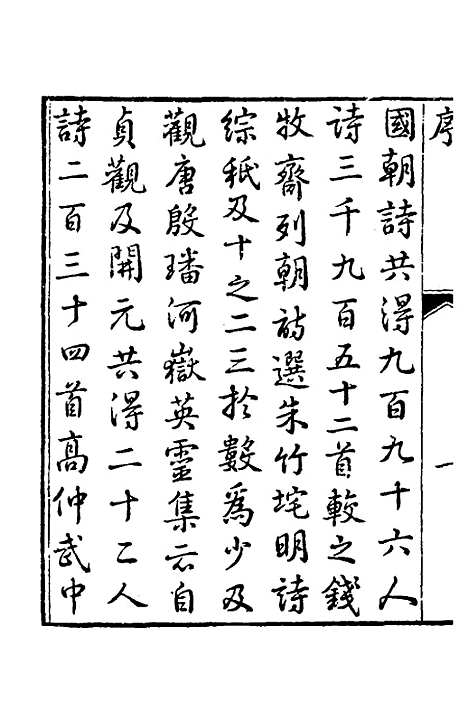 序
一
國朝詩共得九百九十六人
詩三千九百五十二首較之錢
牧齋列朝詩選朱竹垞明詩
綜秖及十之二三於數為少及
觀唐殷璠河嶽英靈集云自
貞觀及開元共得二十二人
詩二百三十四首高仲武中